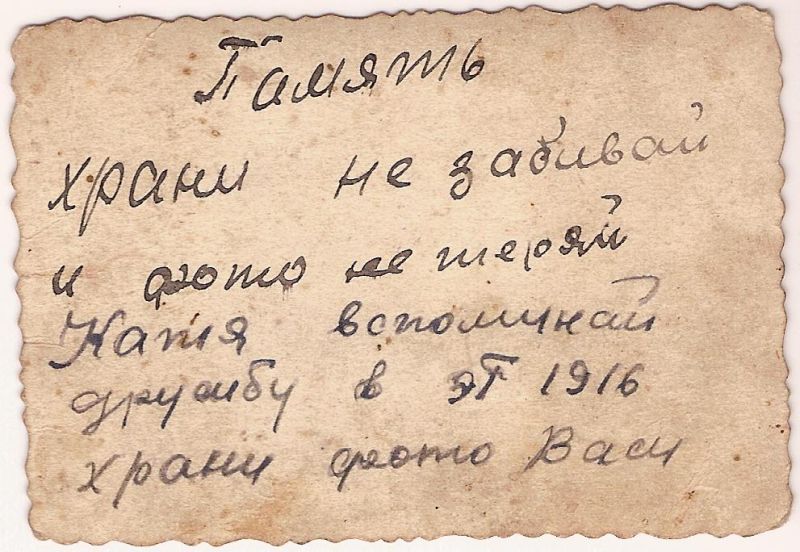 Память
храни не забивай
и фото не теряй
Катя вспоминай
дружбу в эГ 1916
храни фото Васи